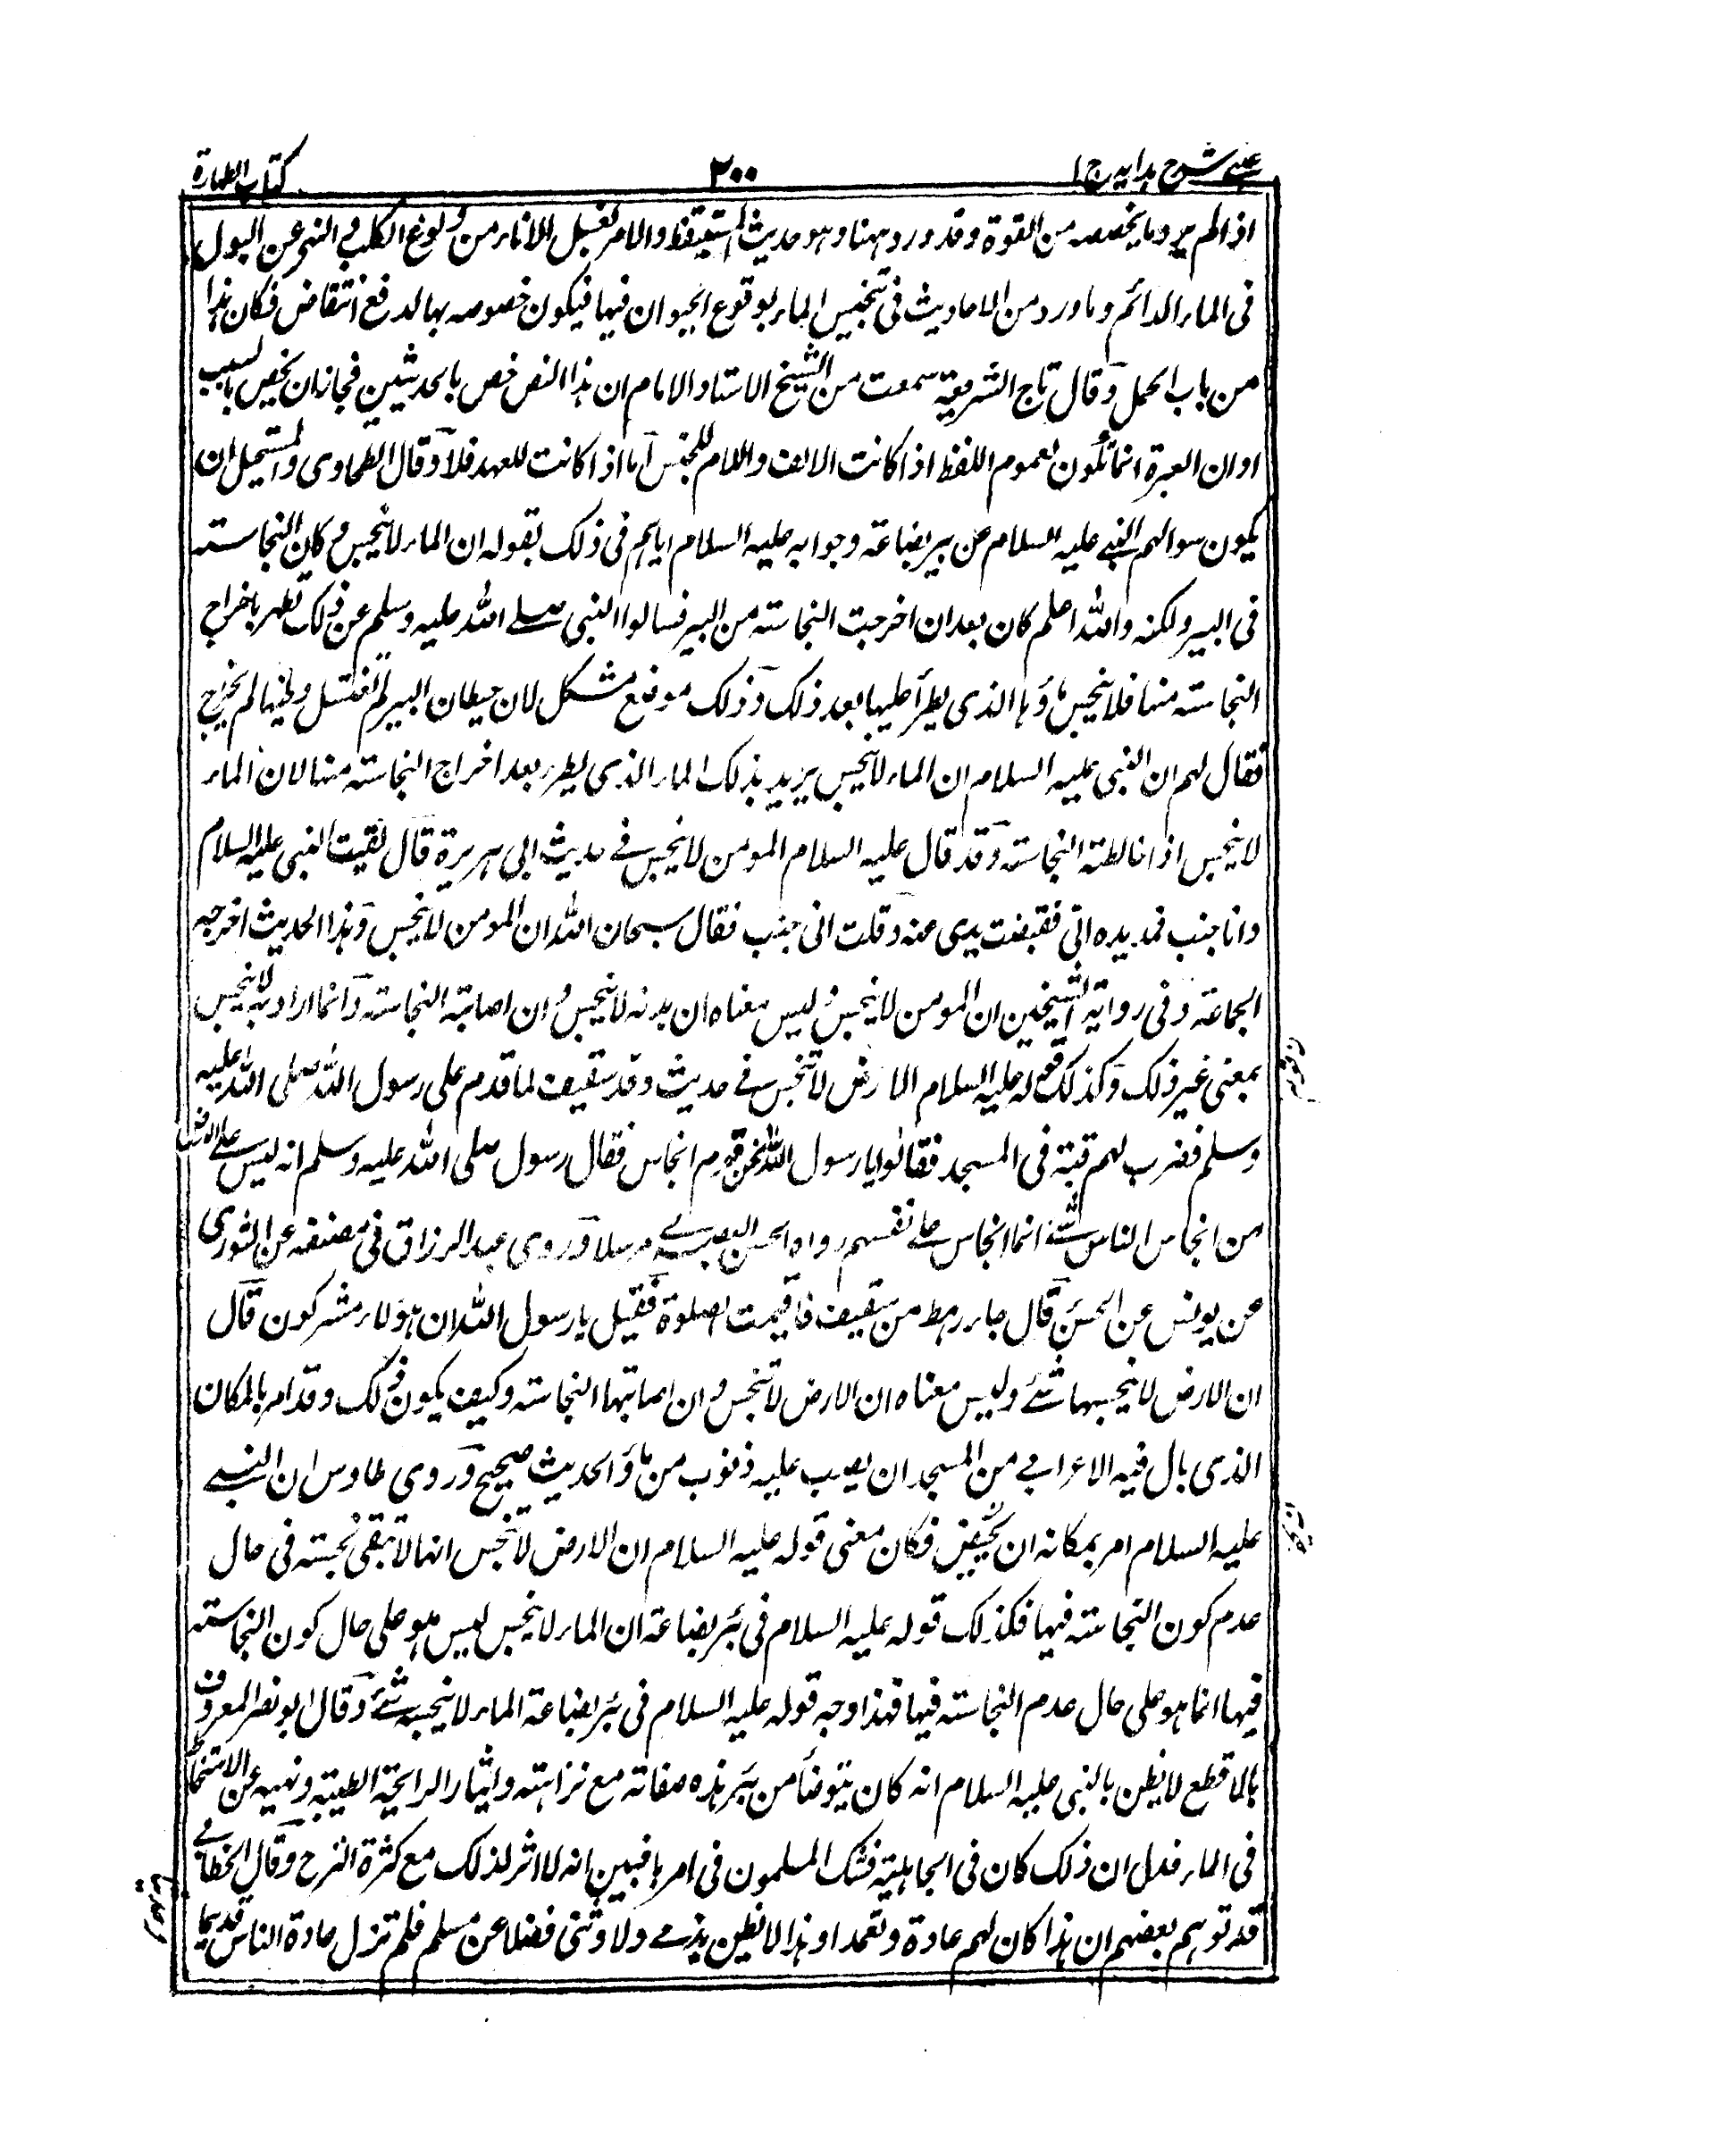 عینی شرح ہدایہ ج ۱
۲۰۰
کتاب الطہارۃ
اذا لم یرد ما یخصصہ من القوۃ وقد ورد ہہنا وہو حدیث المستیقظ والامر بغسل الاناء من ولوغ الکلب والنہی عن البول
فی الماء الدائم وما ورد من الاحادیث فی تنجیس الماء بوقوع الحیوان فیہا فیکون خصوصہ بہا لدفع انتقاض فکان ہذا
من باب الحمل وقال تاج الشریعۃ سمعت من الشیخ الاستاد الامام ان ہذا النص خص بالحدیثین فجاز ان یخص بالسبب
او ان العبرۃ انما تکون لعموم اللفظ اذا کانت الالف واللام للجنس اما اذا کانت للعہد فلا وقال الطحاوی والمستحیل ان
یکون سوالہم النبی علیہ السلام عن بیر بضاعۃ وجوابہ علیہ السلام ایاہم فی ذلک بقولہ ان الماء لا ینجس وکان النجاستہ
فی البیر ولکنہ واللہ اعلم کان بعد ان اخرجت النجاستہ من البیر فسالوا النبی صلے اللہ علیہ وسلم عن ذلک تطہر باخراج
النجاستہ منہا فلا ینجس ماؤہا الذی یطرأ علیہا بعد ذلک وذلک موضع مشکل لان حیطان البیر لم تغتسل وطینہا لم یخرج
فقال لہم ان النبی علیہ السلام ان الماء لا ینجس یرید بذلک الماء الذی یطرء بعد اخراج النجاستہ منہا لان الماء
لا ینجس اذا خالطتہ النجاستہ وقد قال علیہ السلام المومن لا ینجس فے حدیث ابی ہریرۃ قال لقیت النبی علیہ السلام
وانا جنب فمد یدہ الی فقبضت یدی عنہ وقلت انی جنب فقال سبحان اللہ ان المومن لا ینجس وہذا الحدیث اخرجہ
الجماعۃ وفی روایۃ الشیخین ان المومن لا ینجس ولیس معناہ ان بدنہ لا ینجس وان اصابتہ النجاستہ وانما اراد بہ لا ینجس
بمعنی غیر ذلک وکذلک قولہ علیہ السلام الارض لا تنجس فے حدیث وفد ثقیف لما قدم علی رسول اللہ صلی اللہ علیہ
وسلم فضرب لہم قبۃ فی المسجد فقالوا یا رسول اللہ نحن قوم انجاس فقال رسول صلی اللہ علیہ وسلم انہ لیس علے الارض
من انجاس الناس شئ انما انجاس علے نفسہم رواہ الحسن البصرے مرسلا وروی عبدالرزاق فی مصنفہ عن الثوری
عن یونس عن الحسن قال جاء رہط من ثقیف فاقیمت الصلوۃ فقیل یا رسول اللہ ان ہؤلاء مشرکون قال
ان الارض لا ینجسہا شئ ولیس معناہ ان الارض لا تنجس وان اصابتہا النجاستہ وکیف یکون ذلک وقد امر بالمکان
الذی بال فیہ الاعرابے من المسجد ان یصب علیہ ذنوب من ماؤ الحدیث صحیح وروی طاوس ان النبے
علیہ السلام امر بمکانہ ان یحفر فکان معنی قولہ علیہ السلام ان الارض لا تنجس انہا لا تبقی نجستہ فی حال
عدم کون النجاستہ فیہا فکذلک قولہ علیہ السلام فی بئر بضاعۃ ان الماء لا ینجس لیس ہو علی حال کون النجاستہ
فیہا انما ہو علی حال عدم النجاستہ فیہا فہذا وجہ قولہ علیہ السلام فی بئر بضاعۃ الماء لا ینجسہ شئ وقال ابو نصر المعروف
بالاقطع لا یظن بالنبی علیہ السلام انہ کان یتوضأ من بئر ہذہ صفاتہ مع نزاہتہ وایثار الرایحۃ الطیبۃ ونہیہ عن الامتخاط
فی الماء فدل ان ذلک کان فی الجاہلیۃ فشک المسلمون فی امرہا فبین انہ لا اثر لذلک مع کثرۃ النزح وقال الخطابے
قد توہم بعضہم ان ہذا کان لہم عادۃ وتعمدا وہذا لا یظن بذمے ولا وثنی فضلا عن مسلم فلم تزل عادۃ الناس قدیما